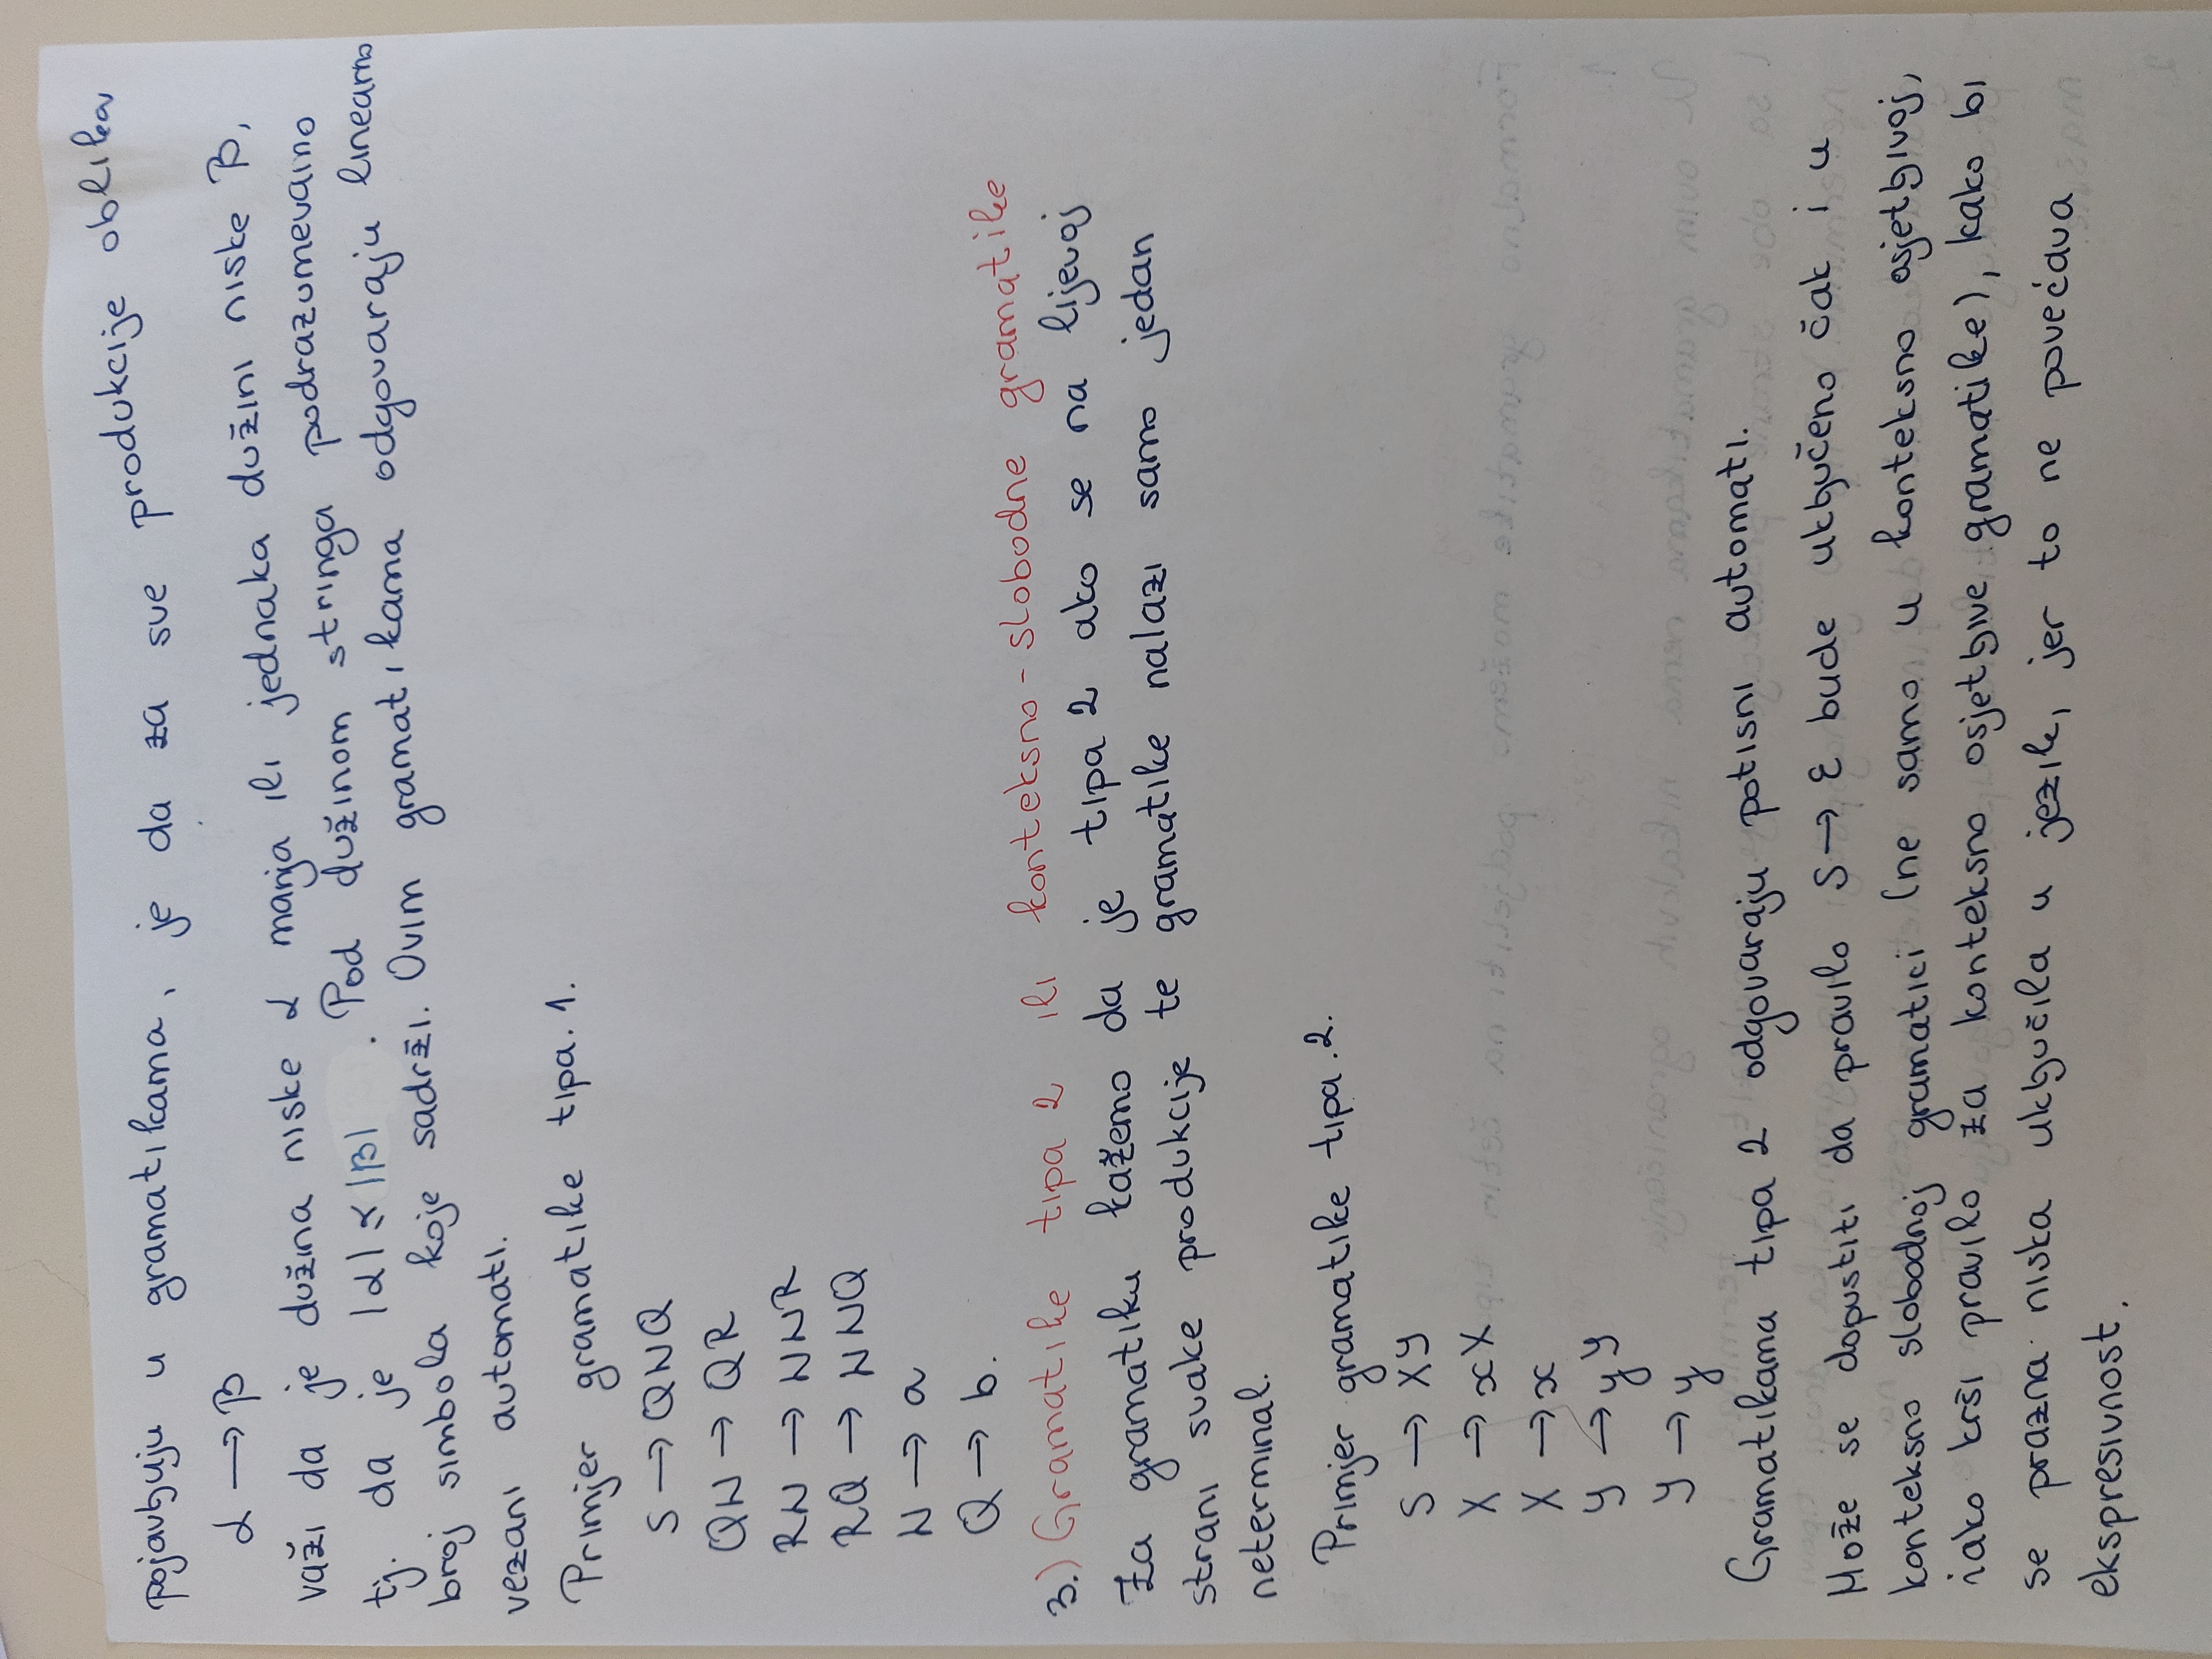 pojavljuju u gramatikama, je da za sve produkcije oblika
α → β
važi da je dužina niske α manja ili jednaka dužini niske β,
tj. da je |α| ≤ |β| . Pod dužinom stringa podrazumevamo
broj simbola koje sadrži. Ovim gramatikama odgovaraju linearno
vezani automati.
Primjer gramatike tipa. 1.
S → QNQ
QN → QR
RN → NNR
RQ → NNQ
N → a
Q → b.
3.) Gramatike tipa 2 ili konteksno-slobodne gramatike
Za gramatiku kažemo da je tipa 2 ako se na lijevoj
strani svake produkcije te gramatike nalazi samo jedan
neterminal.
Primjer gramatike tipa .2.
S → XY
X → xX
X → x
Y → yY
Y → y
Gramatikama tipa 2 odgovaraju potisni automati.
Može se dopustiti da pravilo S → ε bude uključeno čak i u
konteksno slobodnoj gramatici (ne samo u konteksno osjetljivoj,
iako krši pravilo za konteksno osjetljive gramatike), kako bi
se prazna niska uključila u jezik, jer to ne povećava
ekspresivnost.